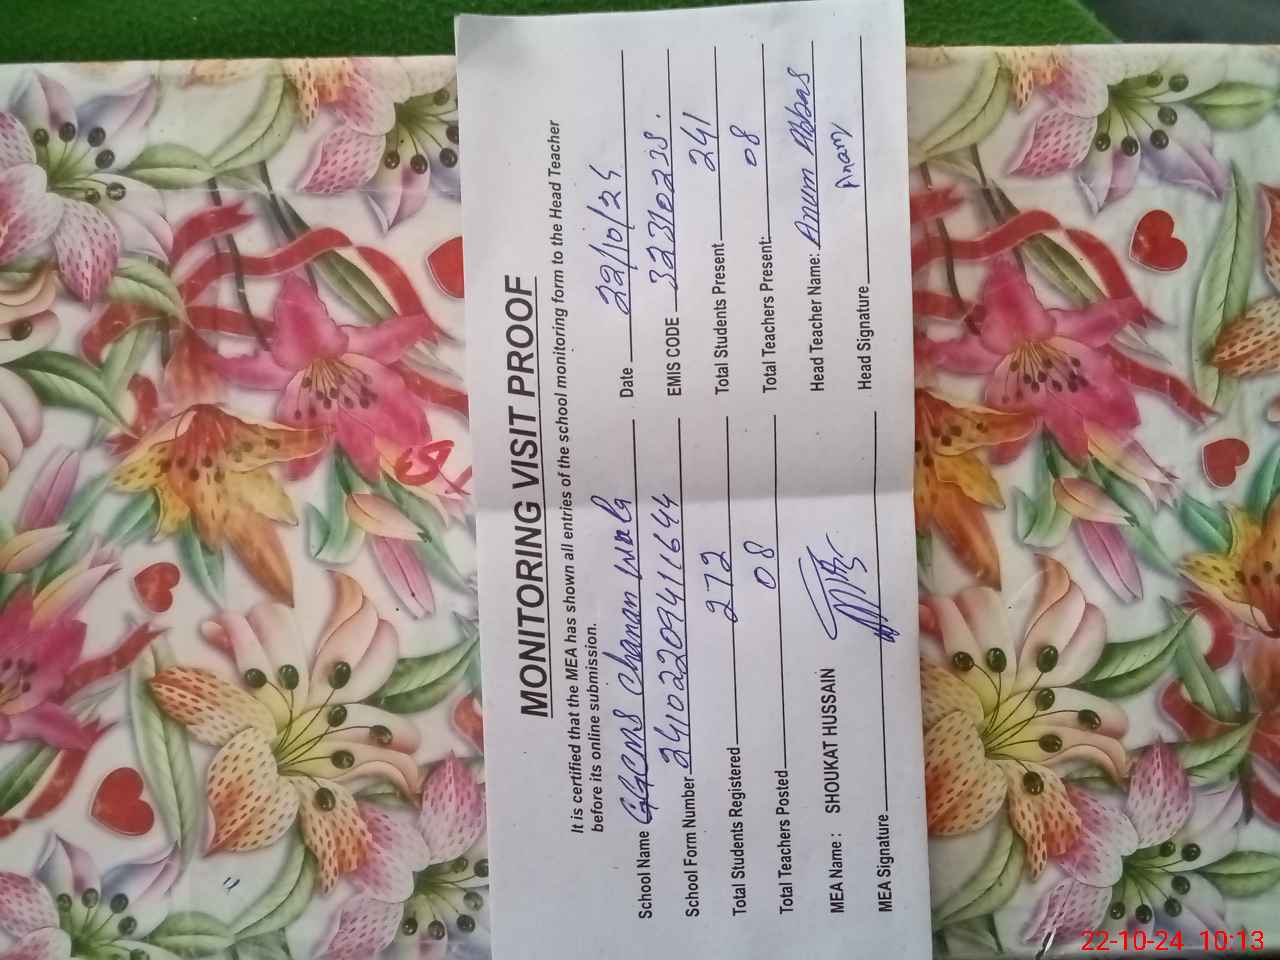 MONITORING VISIT PROOF
It is certified that the MEA has shown all entries of the school monitoring form to the Head Teacher
before its online submission.
School Name GGCMS Chanan Wala Date 22/10/24
School Form Number 241022094116 44 EMIS CODE 32310235.
Total Students Registered 272 Total Students Present 241
Total Teachers Posted 08 Total Teachers Present: 08
MEA Name: SHOUKAT HUSSAIN Head Teacher Name: Anum Abbas
MEA Signature Head Signature Anam
22-10-24 10:13